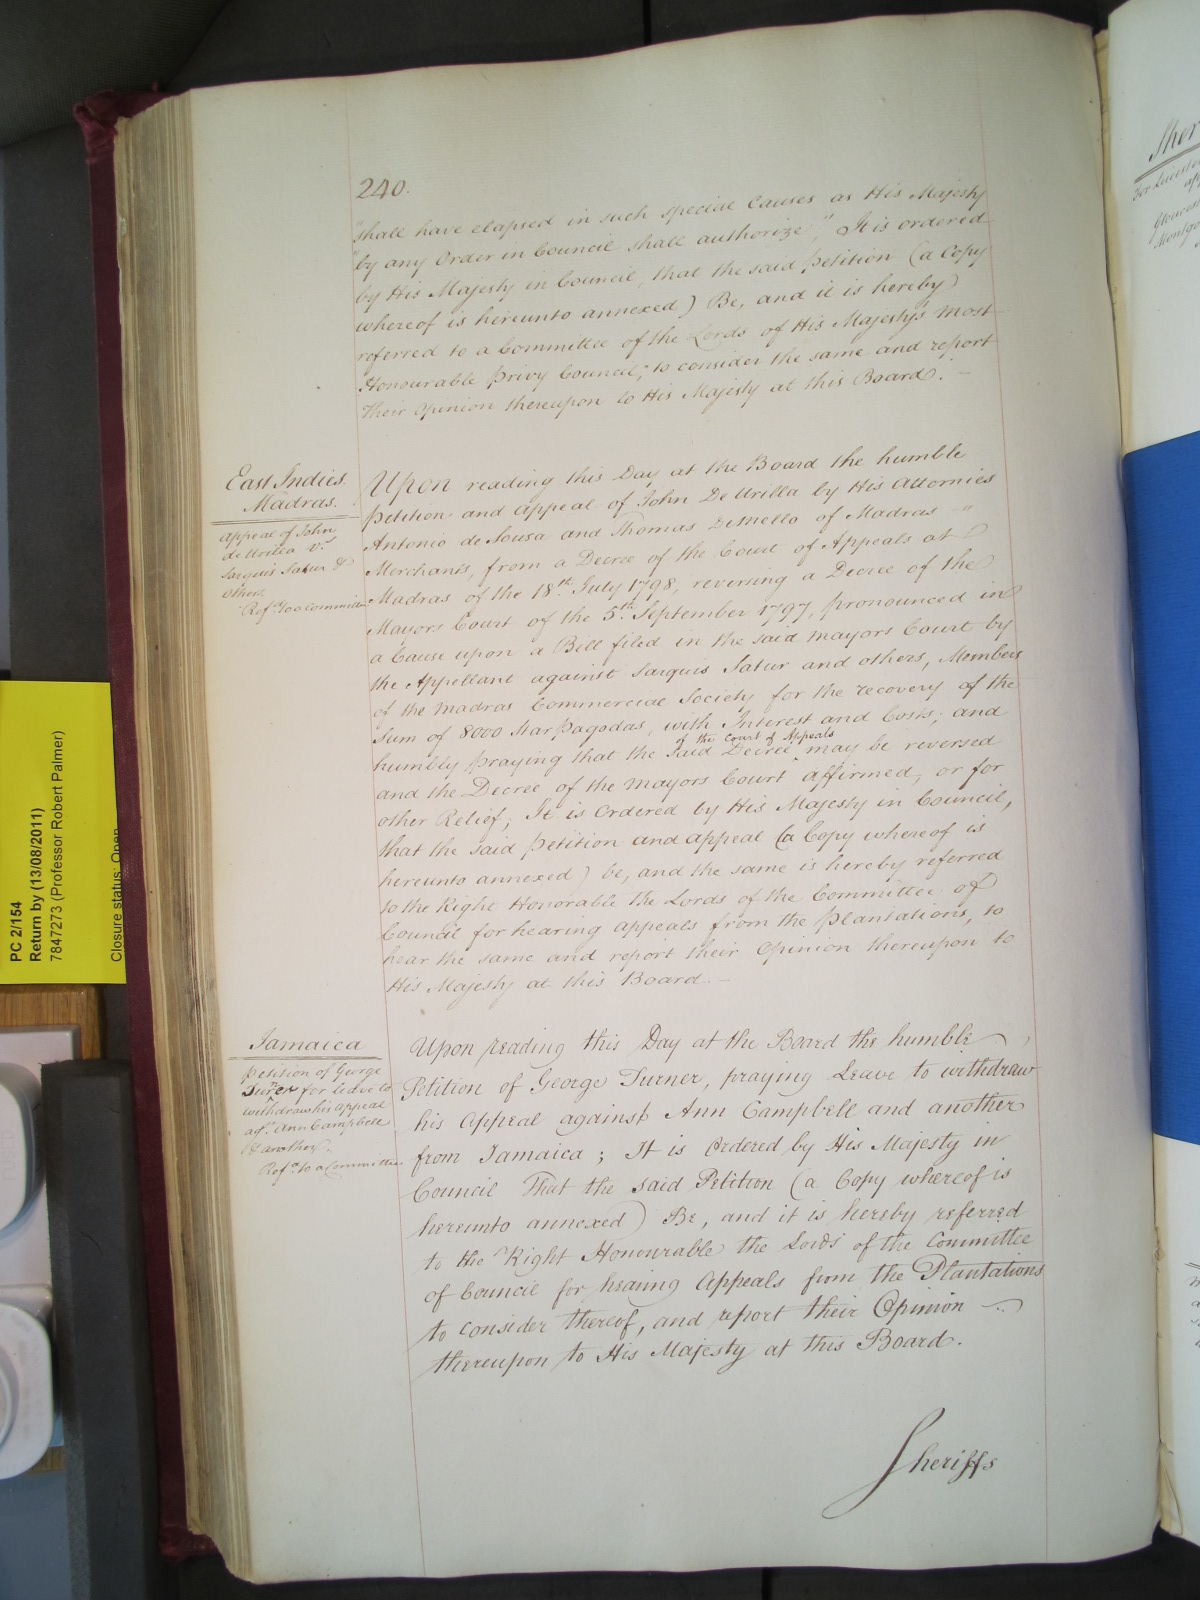 240.
"shall have elapsed in such special Causes as His Majesty
"by any Order in Council shall authorize," It is ordered
by His Majesty in Council, that the said Petition (a Copy
whereof is hereunto annexed) Be, and it is hereby
referred to a Committee of the Lords of His Majesty's most
Honourable Privy Council; to consider the same and report
their Opinion thereupon to His Majesty at this Board. —
East Indies.
Madras.
Appeal of John
de Urilla v.s
Sarquis Satur &
others.
Ref.d to a Committee
Upon reading this Day at the Board the humble
Petition and Appeal of John De Urilla by His Attornies
Antonio de Sousa and Thomas DeMello of Madras "
Merchants, from a Decree of the Court of Appeals at
Madras of the 18th July 1798, reversing a Decree of the
Mayors Court of the 5th September 1797, pronounced in
a Cause upon a Bill filed in the said mayors Court by
the Appellant against Sarquis Satur and others, Members
of the Madras Commercial Society for the recovery of the
Sum of 8000 Star Pagodas, with Interest and Costs; and
of the Court of Appeals
humbly praying that the said Decree ^ may be reversed
and the Decree of the Mayors Court affirmed, or for
other Relief; It is Ordered by His Majesty in Council,
that the said Petition and Appeal (a Copy whereof is
hereunto annexed) be, and the same is hereby referred
to the Right Honorable the Lords of the Committee of
Council for hearing Appeals from the Plantations, to
hear the same and report their Opinion thereupon to
His Majesty at this Board. —
Jamaica
Petition of George
Turner for leave to
withdraw his Appeal
agt. Ann Campbell
& another.
Ref.d to a Committee
Upon reading this Day at the Board the humble
Petition of George Turner, praying Leave to withdraw
his Appeal against Ann Campbell and another
from Jamaica; It is Ordered by His Majesty in
Council That the said Petition (a Copy whereof is
hereunto annexed) Be, and it is hereby referred
to the Right Honourable the Lords of the Committee
of Council for hearing Appeals from the Plantations
to consider thereof, and report their Opinion
thereupon to His Majesty at this Board.
Sheriffs
PC 2/154
Return by (13/08/2011)
7847273 (Professor Robert Palmer)
Closure status: Open